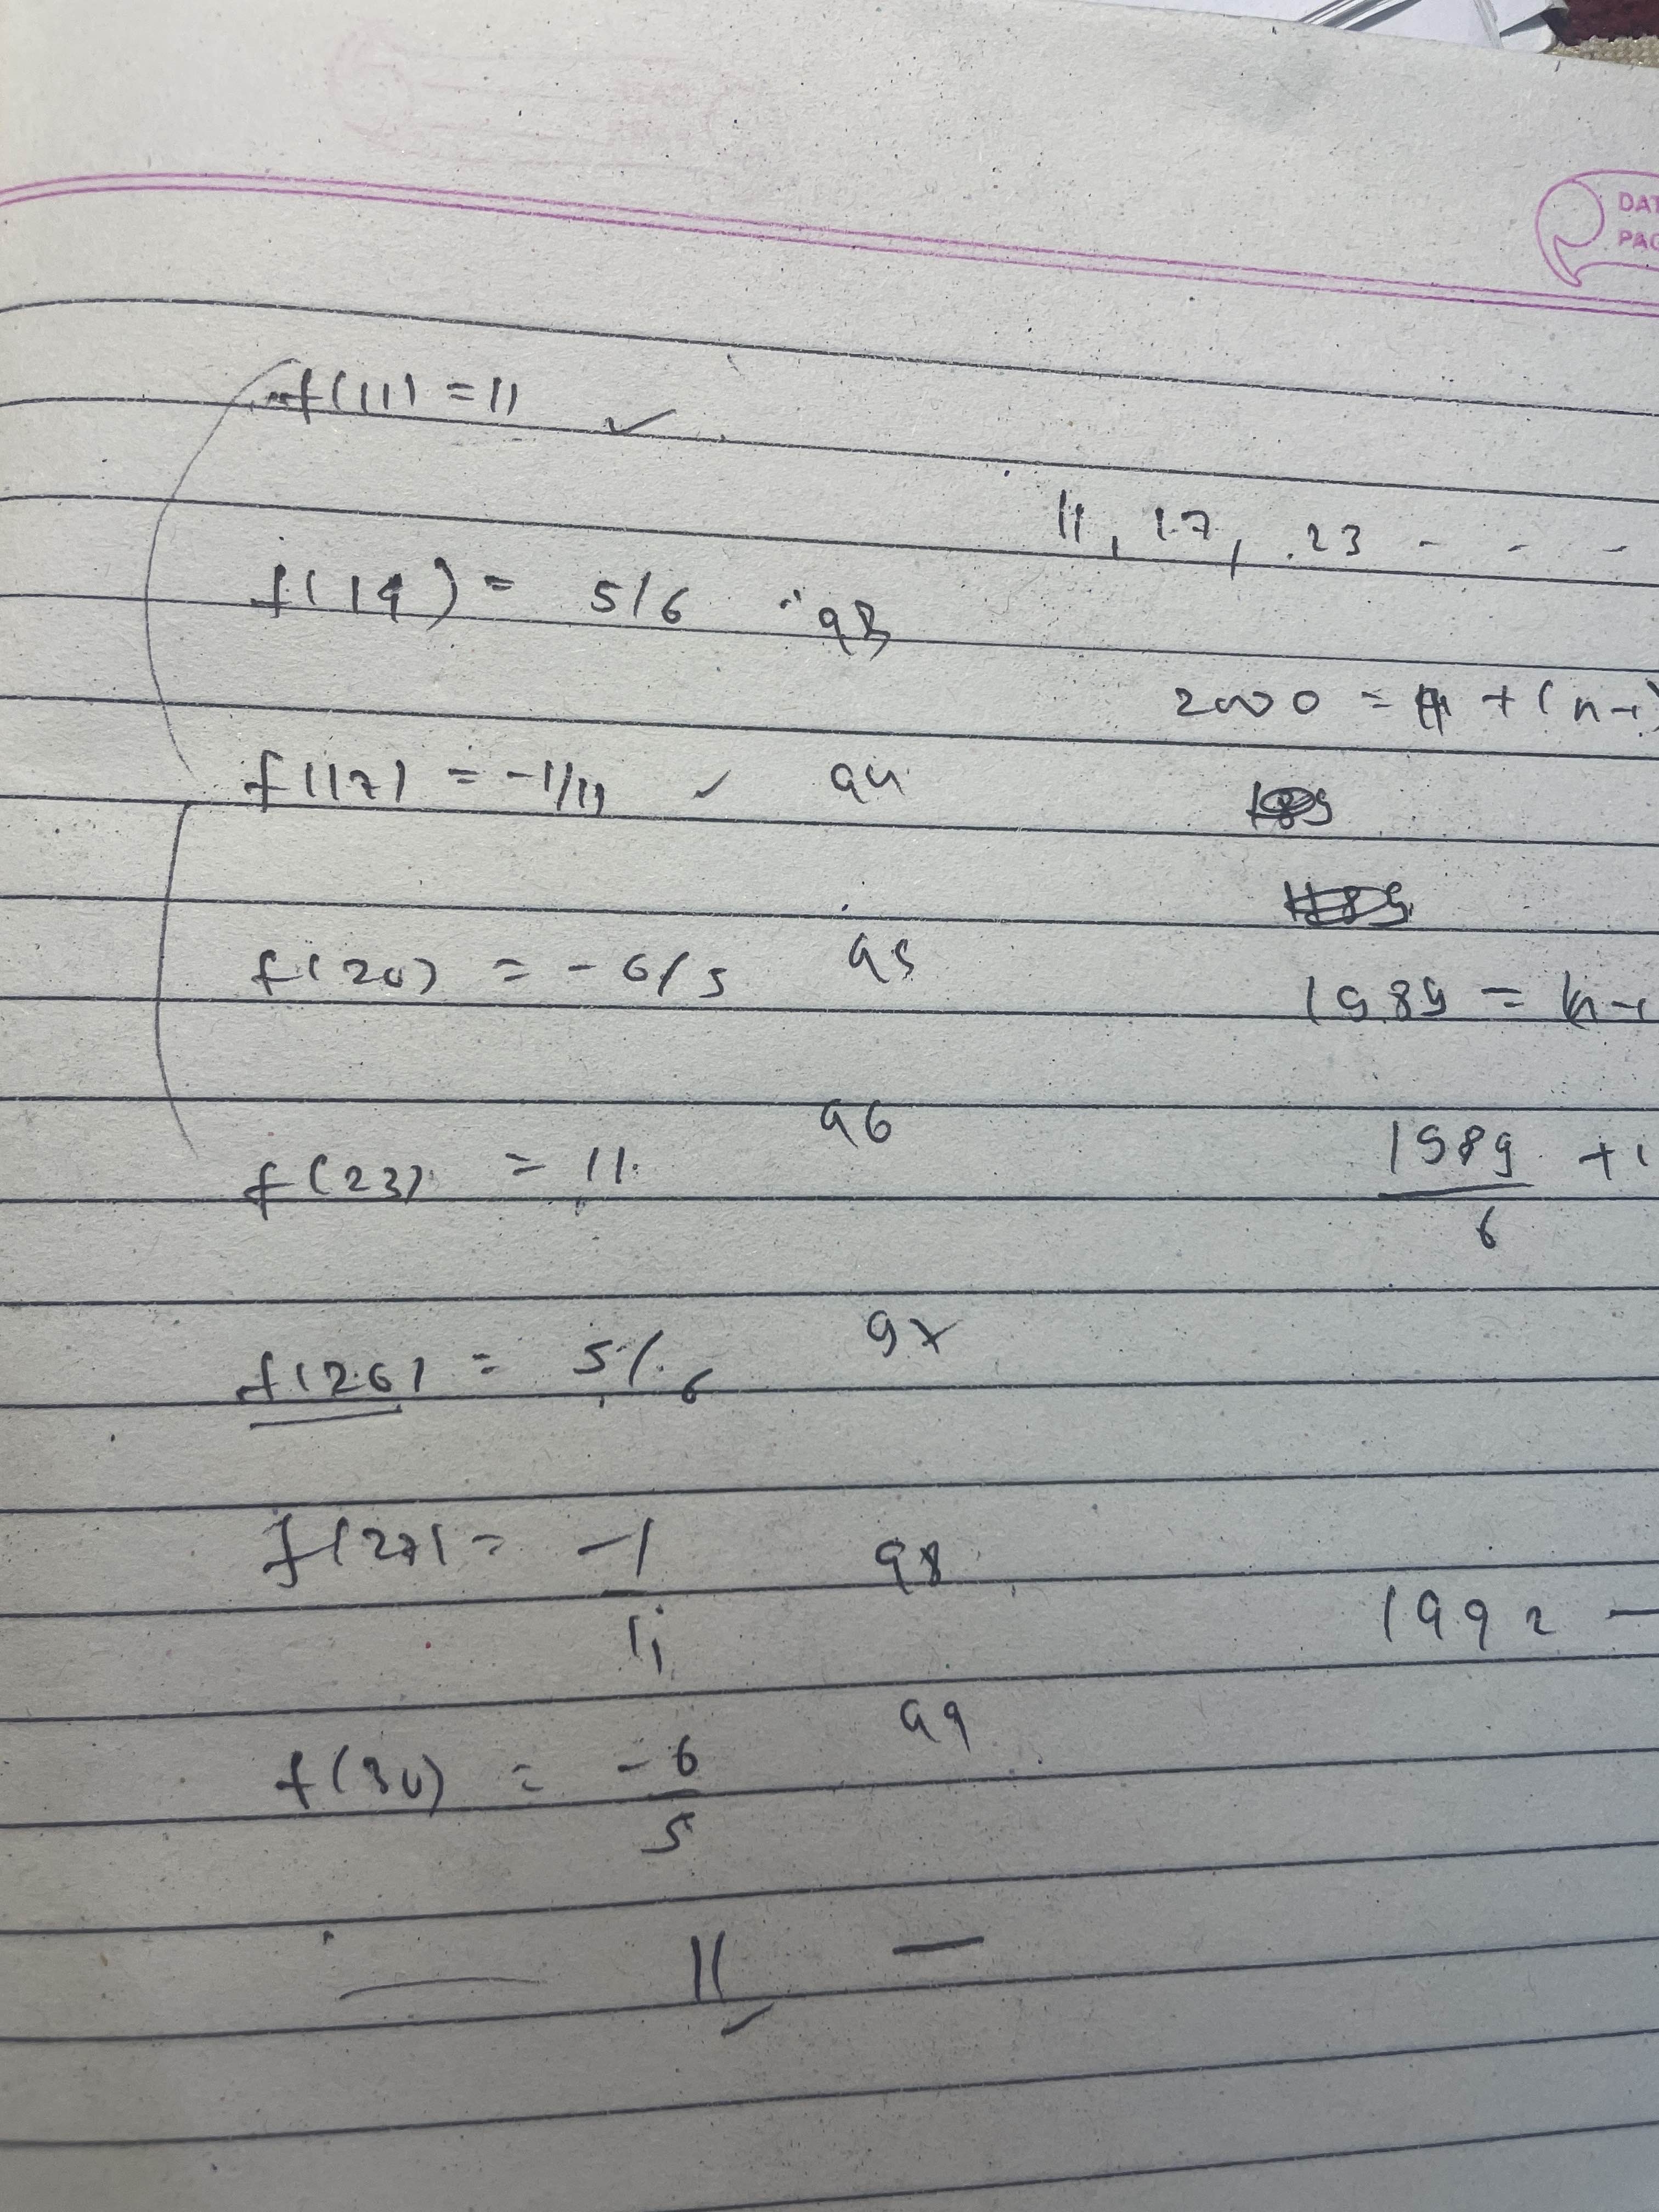 DAT
PAG
f(11) = 11 ✓
11, 17, 23 - - -
f(14) = 5/6 a3
2000 = 11 + (n-1)
f(17) = -1/11 ✓ a4
f(20) = -6/5 a5
1989 = n-1
f(23) = 11 a6
1989/6 +1
f(26) = 5/6 a7
f(27) = -1/11 a8
1992 -
f(30) = -6/5 a9
— 11 —